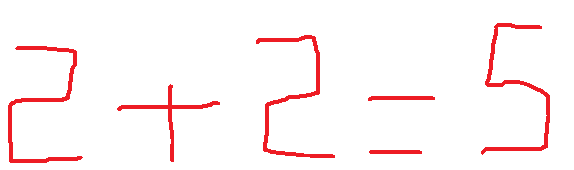 2 + 2 = 5